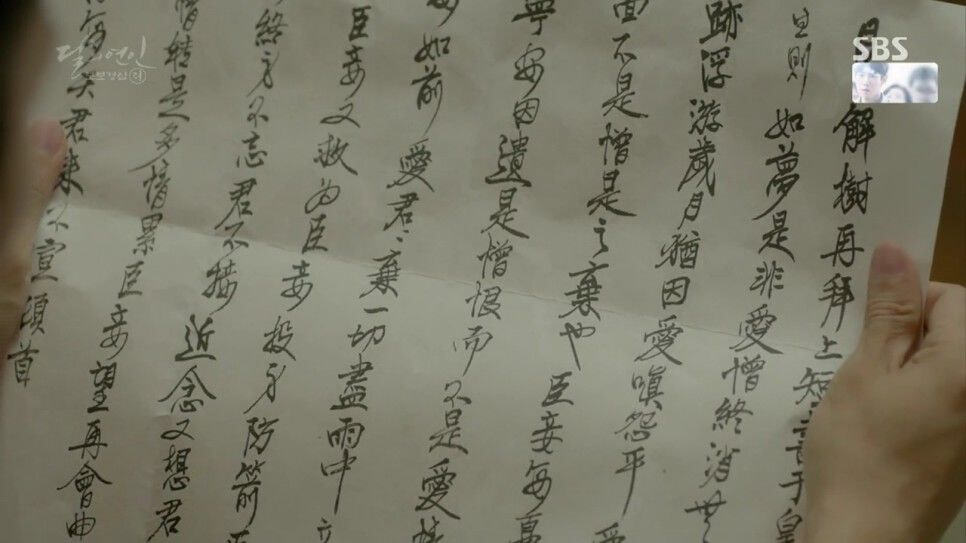 SBS
달의 연인
보보경심 려
解樹再拜上短于皇
旦則如夢是非愛憎終消世
跡浮游歲月猶因愛嗔怨平
面不是憎是之棄也臣妾每
寧安因遺是憎恨而不是愛
如前愛君〻棄一切盡雨中
臣妾又救為臣妾投身防箭
終身不忘君不接近念又想君
情轉是多情累臣妾望再會曲
每天君來不宣頓首